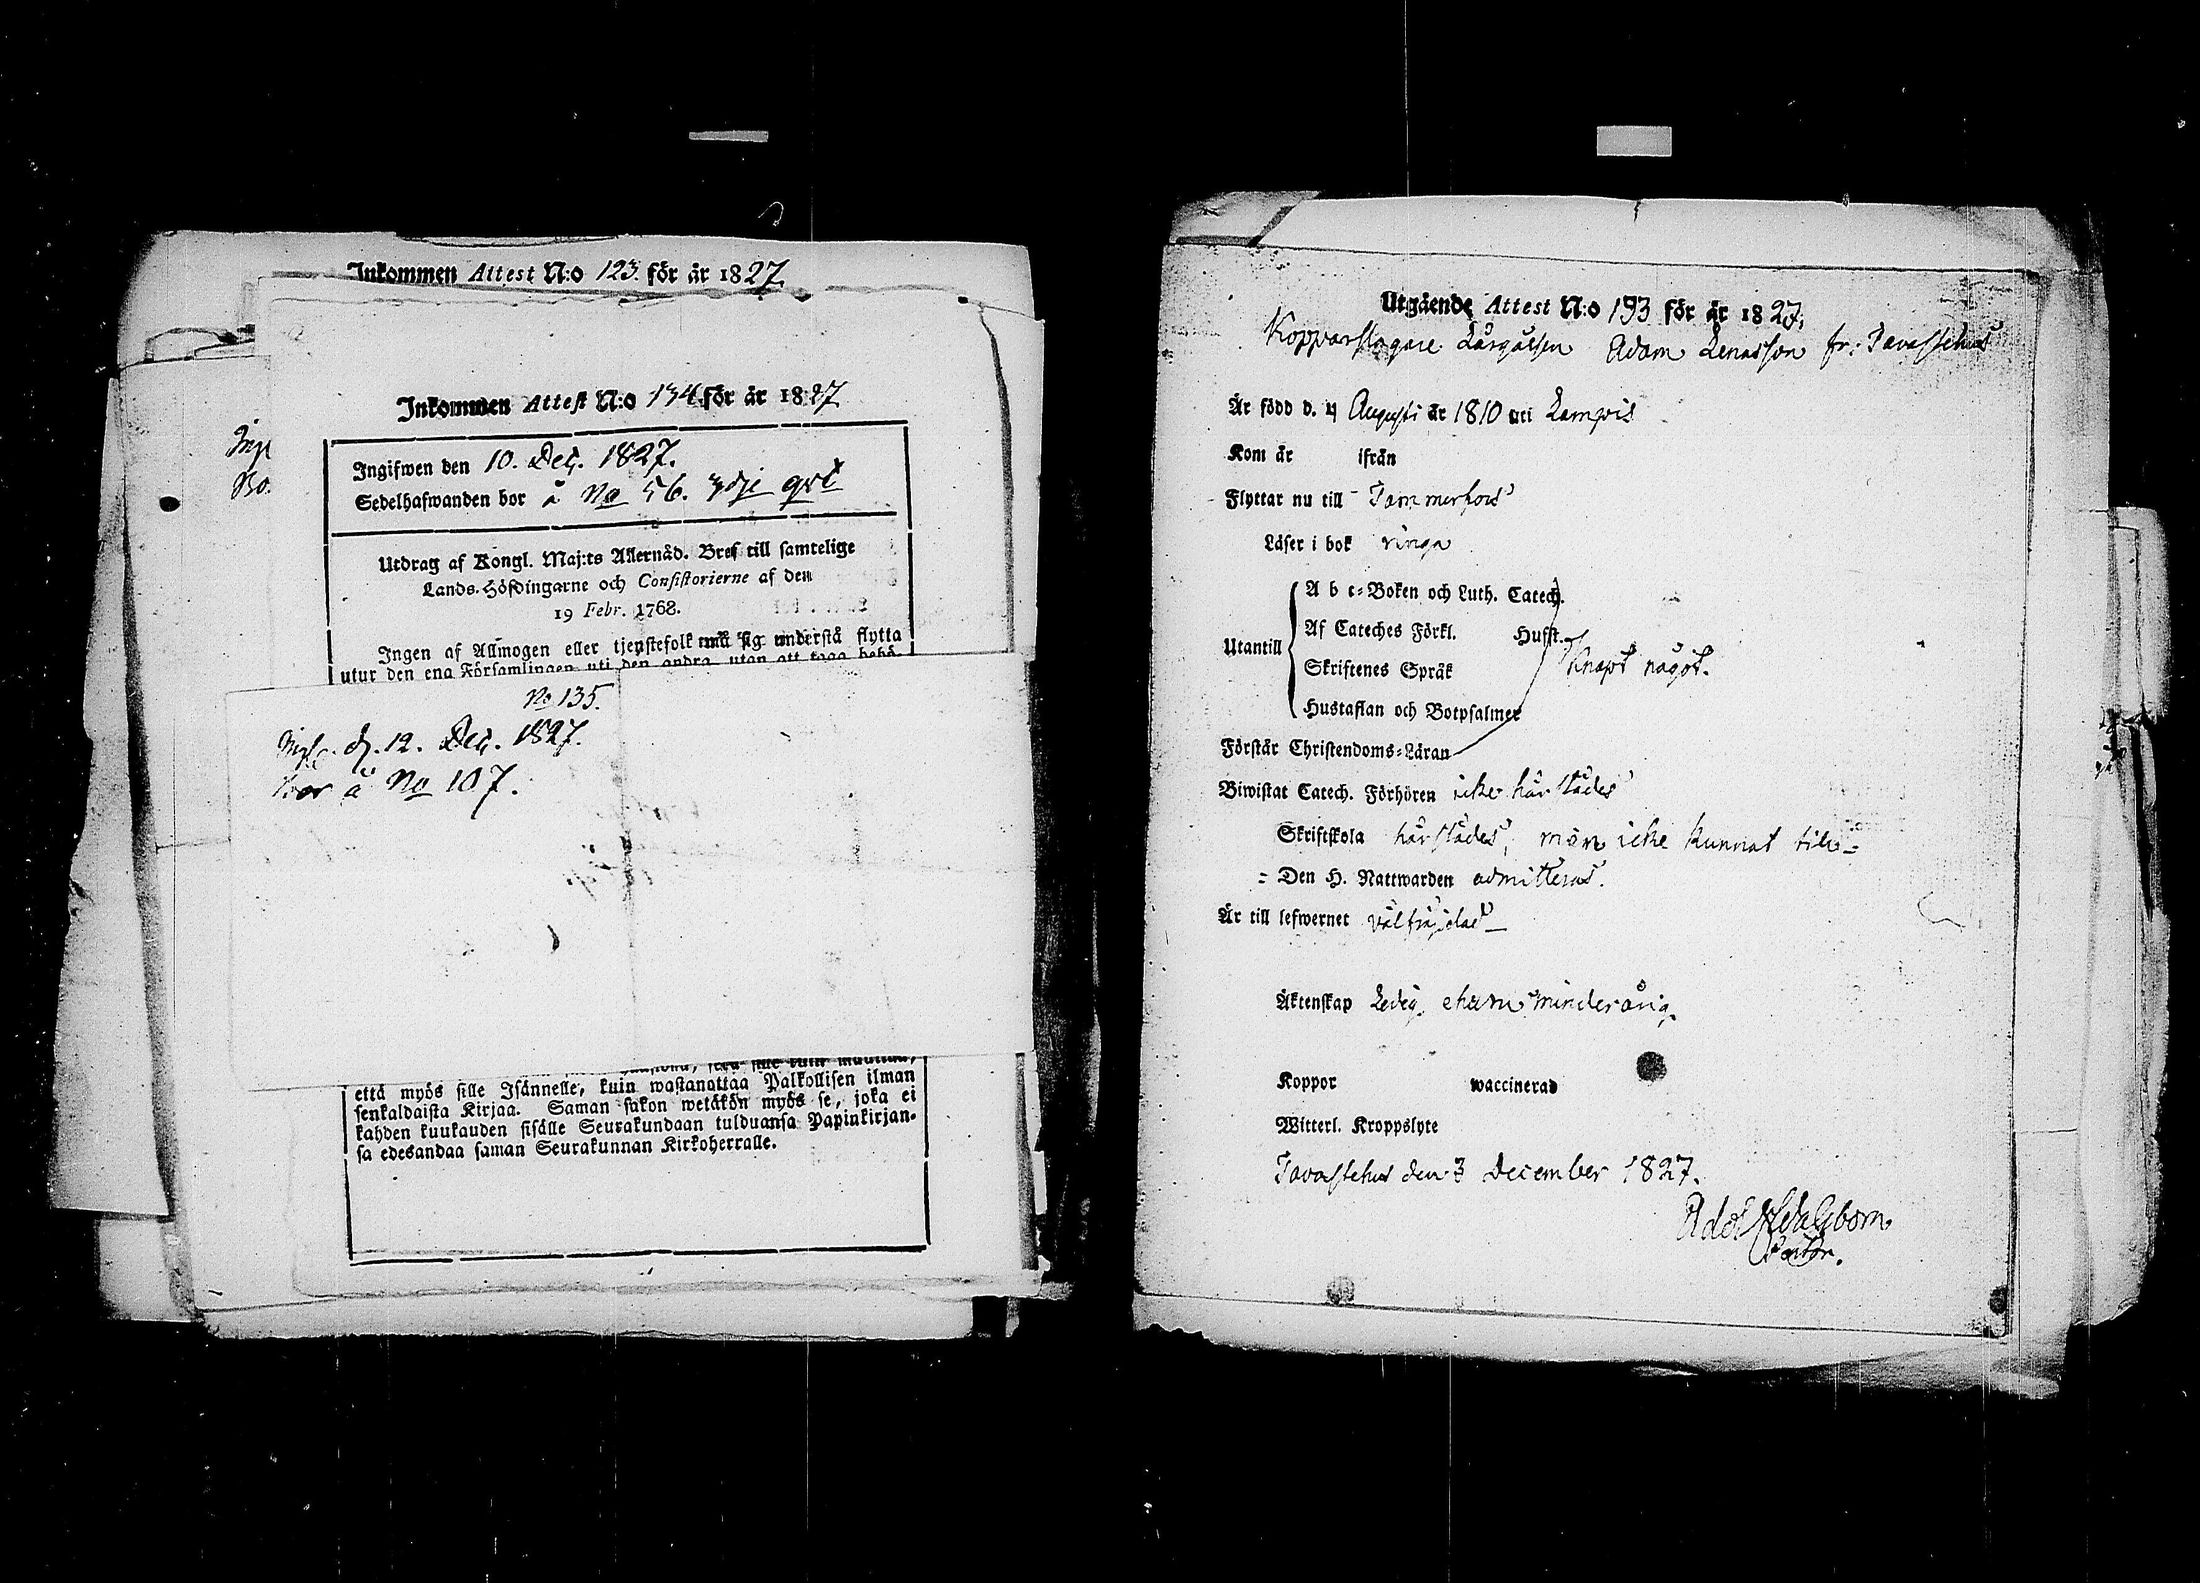 Inkommen Attest N:o 123. för år 1827.
Inkommen Attest N:o 134 för år 1827
Ingifwen den 10. Dec. 1827.
Sedelhafwanden bor å No 56. 3dje qvt
Utdrag af Kongl. Maj:ts Allernåd. Bref till samtelige
Lands-Höfdingarne och Consistorierne af den
19 Febr. 1768.
Ingen af Allmogen eller tjenstefolk må sig understå flytta
utur den ena Församlingen uti den andra, utan att taga behö-
No 135.
d. 12. Dec. 1827.
bor å No 107.
että myös sille Isännelle, kuin wastanattaa Palkollisen ilman
senkaldaista Kirjaa. Saman sakon wetäkön myös se, joka ei
kahden kuukauden sisälle Seurakundaan tulduansa Papinkirjan-
sa edesandaa saman Seurakunnan Kirkoherralle.
Utgående Attest N:o 193 för år 1827.
Kopparslagare Lärgåssen Adam Lenasson fr: Tavastehus
Är född d. 4 Augusti år 1810 uti Lampis
Kom år ifrån
Flyttar nu till Tammerfors
Läser i bok ringa
A b c-Boken och Luth. Catech.
Af Cateches Förkl. Husst.
Utantill
Knapt något.
Skriftenes Språk
Hustaflan och Botpsalmer
Förstår Christendoms-Läran
Biwistat Catech. Förhören icke härstädes
Skriftskola härstädes, men icke kunnat till-
= Den H. Nattwarden admitteras.
Är till lefwernet välfräjdad
Äktenskap Ledig, ehuru minderårig.
Koppor waccinerad
Witterl. Kroppslyte
Tavastehus den 3 December 1827.